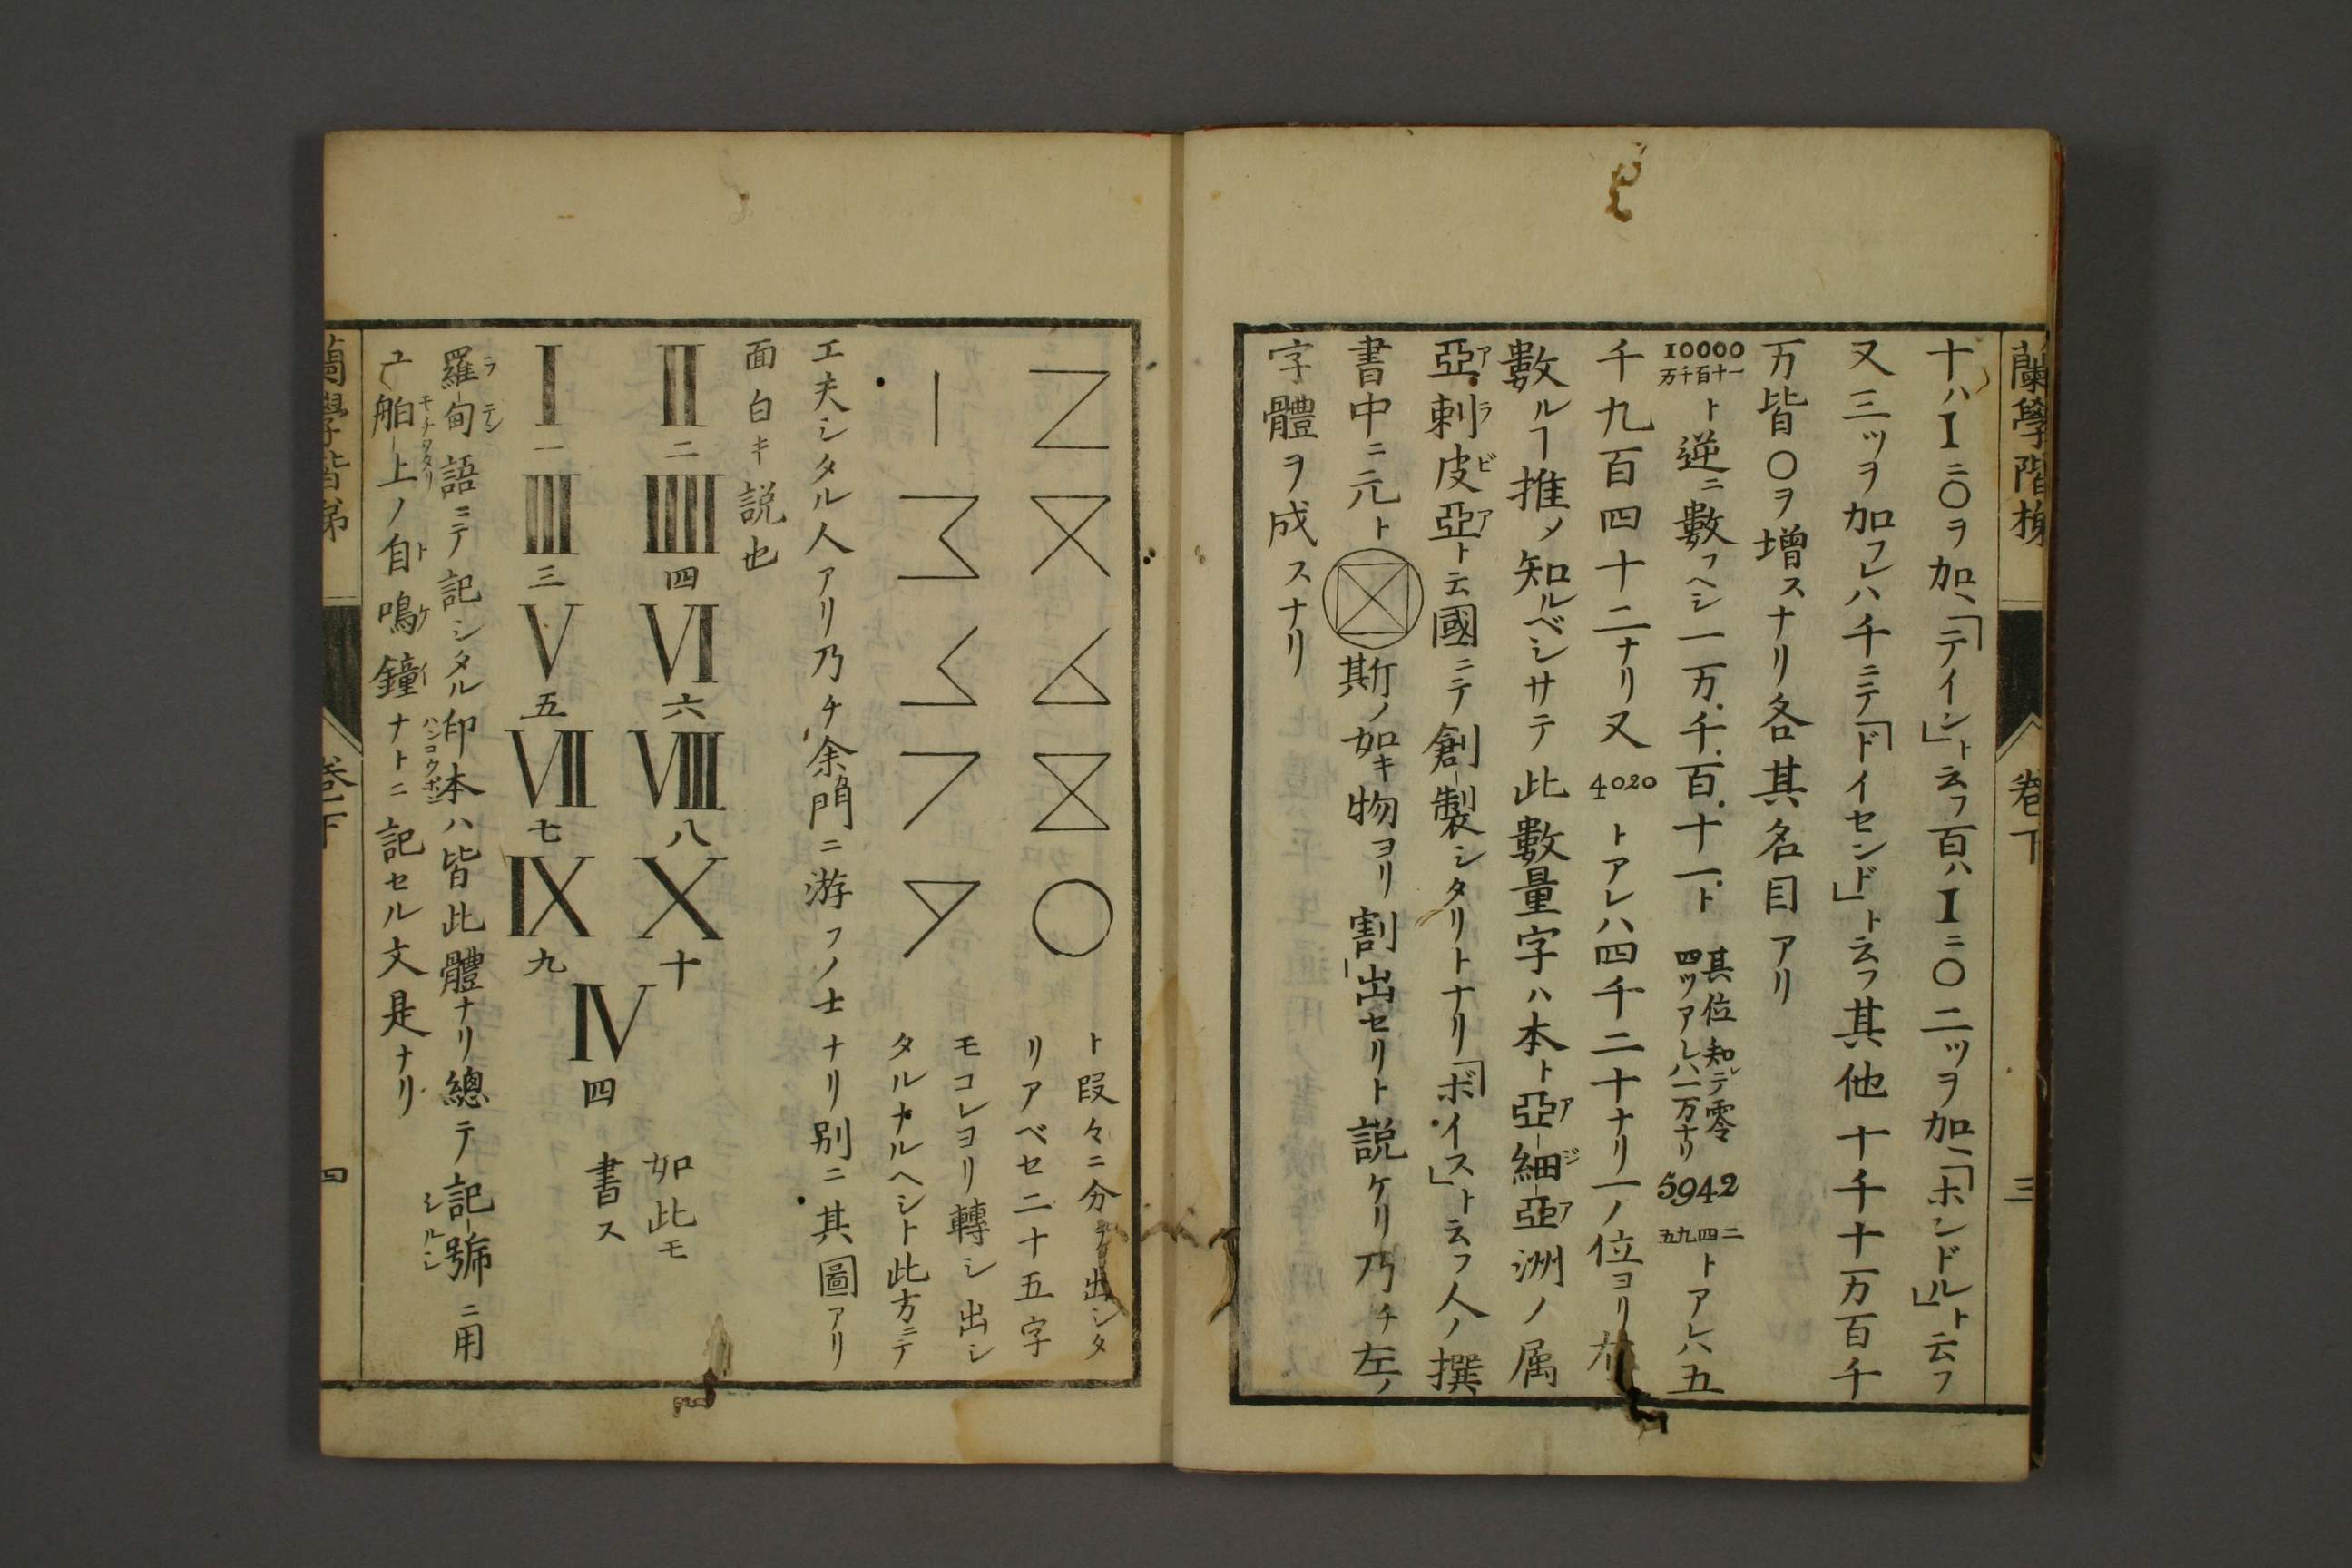 蘭學階梯
卷下
三
十ハI二〇ヲ加、「テイン」ト云フ百ハI二〇二ツヲ加、「ホンドル」ト云フ
又三ツヲ加フレハ千ニテ「ドイセンド」ト云フ其他十千十万百千
万皆〇ヲ增スナリ各其名目アリ
10000
万千百十一
ト逆ニ數フヘシ一万千百十一ト
其位知レテ零
四ツアレハ一万ナリ
5942
五九四二
トアレハ五
千九百四十二ナリ又4020トアレハ四千二十ナリ一ノ位ヨリ
數ルヿ推メ知ルベシサテ此數量字ハ本ト亞細亞洲ノ属
アジア
亞剌皮亞ト云國ニテ創製シタリトナリ「ボイス」ト云フ人ノ撰
アラビア
書中ニ元ト
斯ノ如キ物ヨリ割出セリト説ケリ乃チ左ノ
字體ヲ成スナリ
ト段々ニ分チ出シタ
リアベセ二十五字
モコレヨリ轉シ出シ
タルナルヘシト此方ニテ
工夫シタル人アリ乃チ余門ニ游フノ士ナリ別ニ其圖アリ
面白キ説也
II 二 IIII 四 VI 六 VIII 八 X 十
I 一 III 三 V 五 VII 七 IX 九
IV 四
如此モ
書ス
羅甸語ニテ記シタル印本ハ皆此體ナリ總テ記號ニ用
ラテン
ハンコウボン
シルシ
亡舶上ノ自鳴鐘ナトニ記セル文是ナリ
トケイ
蘭學階梯
卷下
四